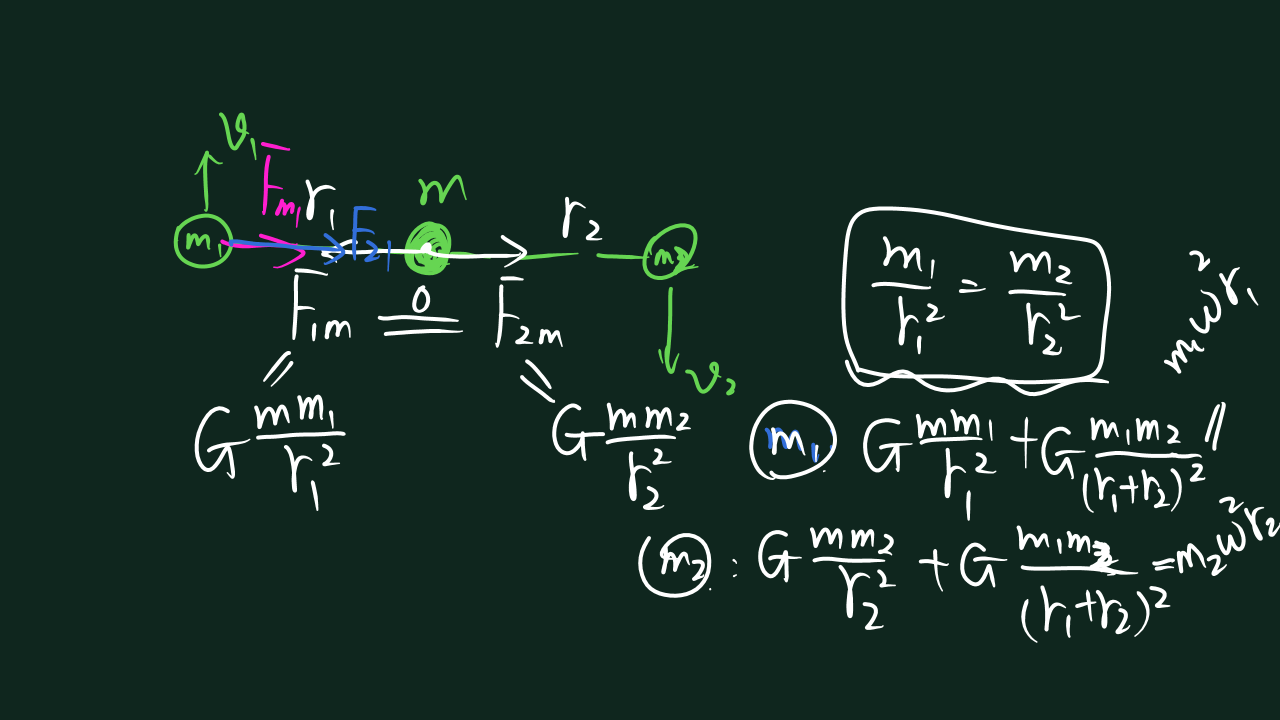 v₁
F_{m1} r₁ F_{21} m r₂
m₁ m₂
F_{1m} 0 F_{2m}
v₂
= G \frac{m m_1}{r_1^2}
= G \frac{m m_2}{r_2^2}
\frac{m_1}{r_1^2} = \frac{m_2}{r_2^2}
m₁ G \frac{m m_1}{r_1^2} + G \frac{m_1 m_2}{(r_1+r_2)^2} = m_1 ω^2 r_1
m₂ : G \frac{m m_2}{r_2^2} + G \frac{m_1 m_2}{(r_1+r_2)^2} = m_2 ω^2 r_2